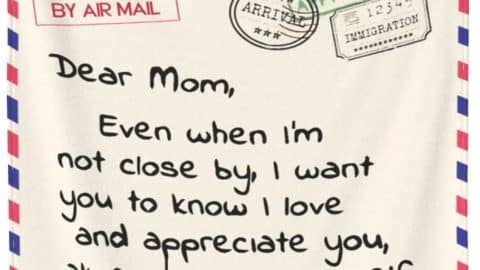 BY AIR MAIL
ARRIVAL
12345
IMMIGRATION
Dear Mom,
Even when I'm
not close by, I want
you to know I love
and appreciate you,